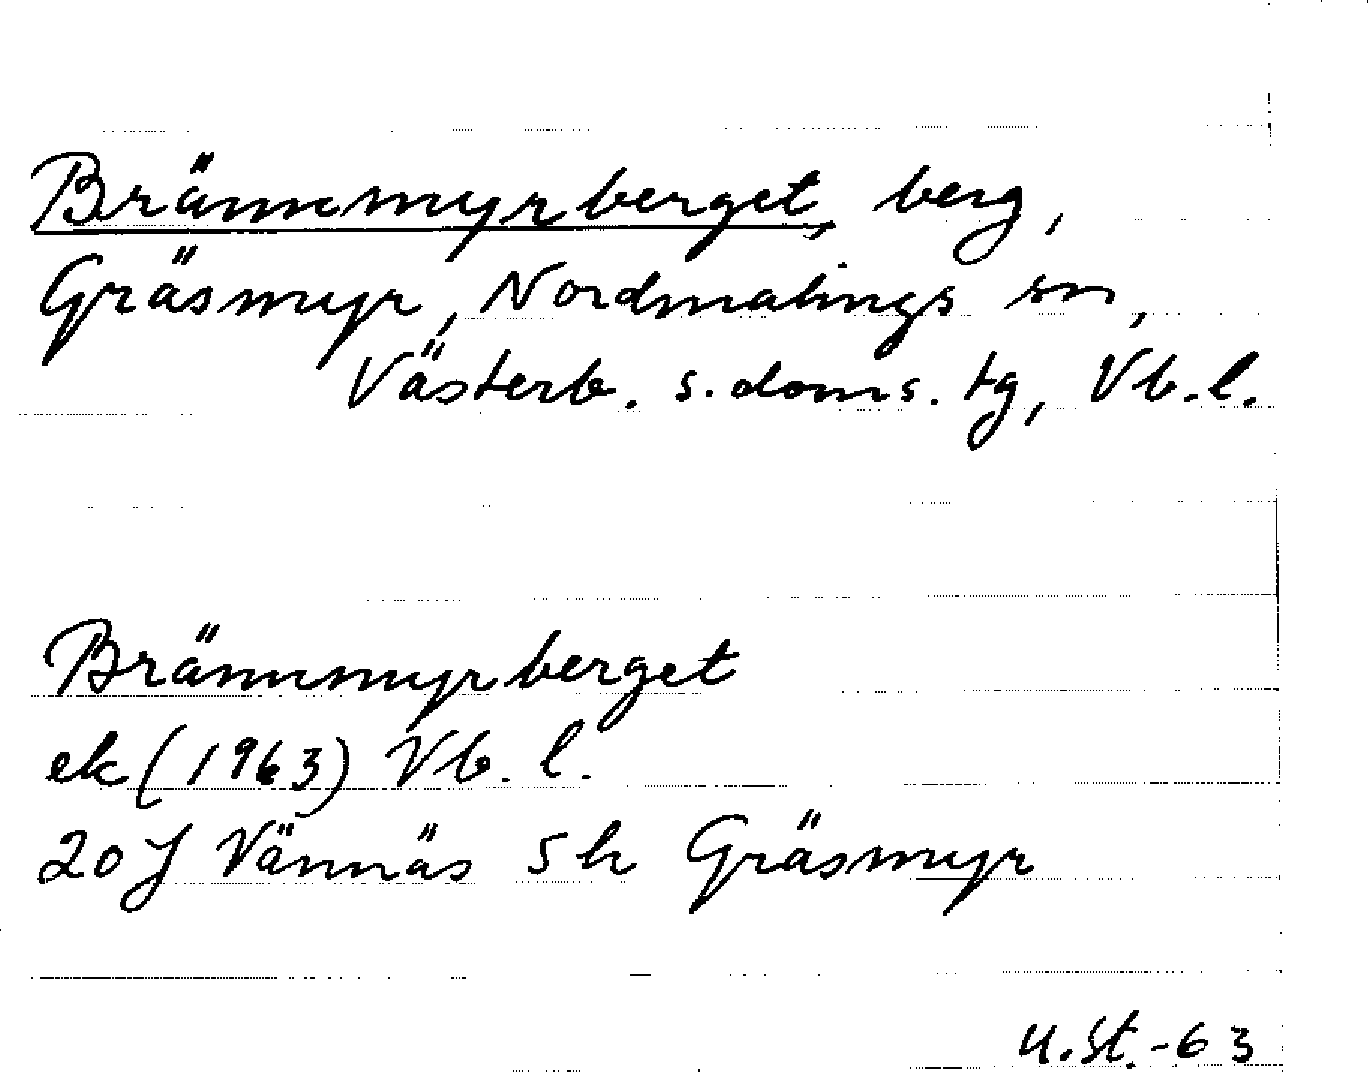 Brännmyrberget, berg,
Gräsmyr, Nordmalings sn,
Västerb. s. doms. tg, Vb. l.
Brännmyrberget
ek (1963) Vb. l.
20 J Vännäs 5 h Gräsmyr
U. St. -63